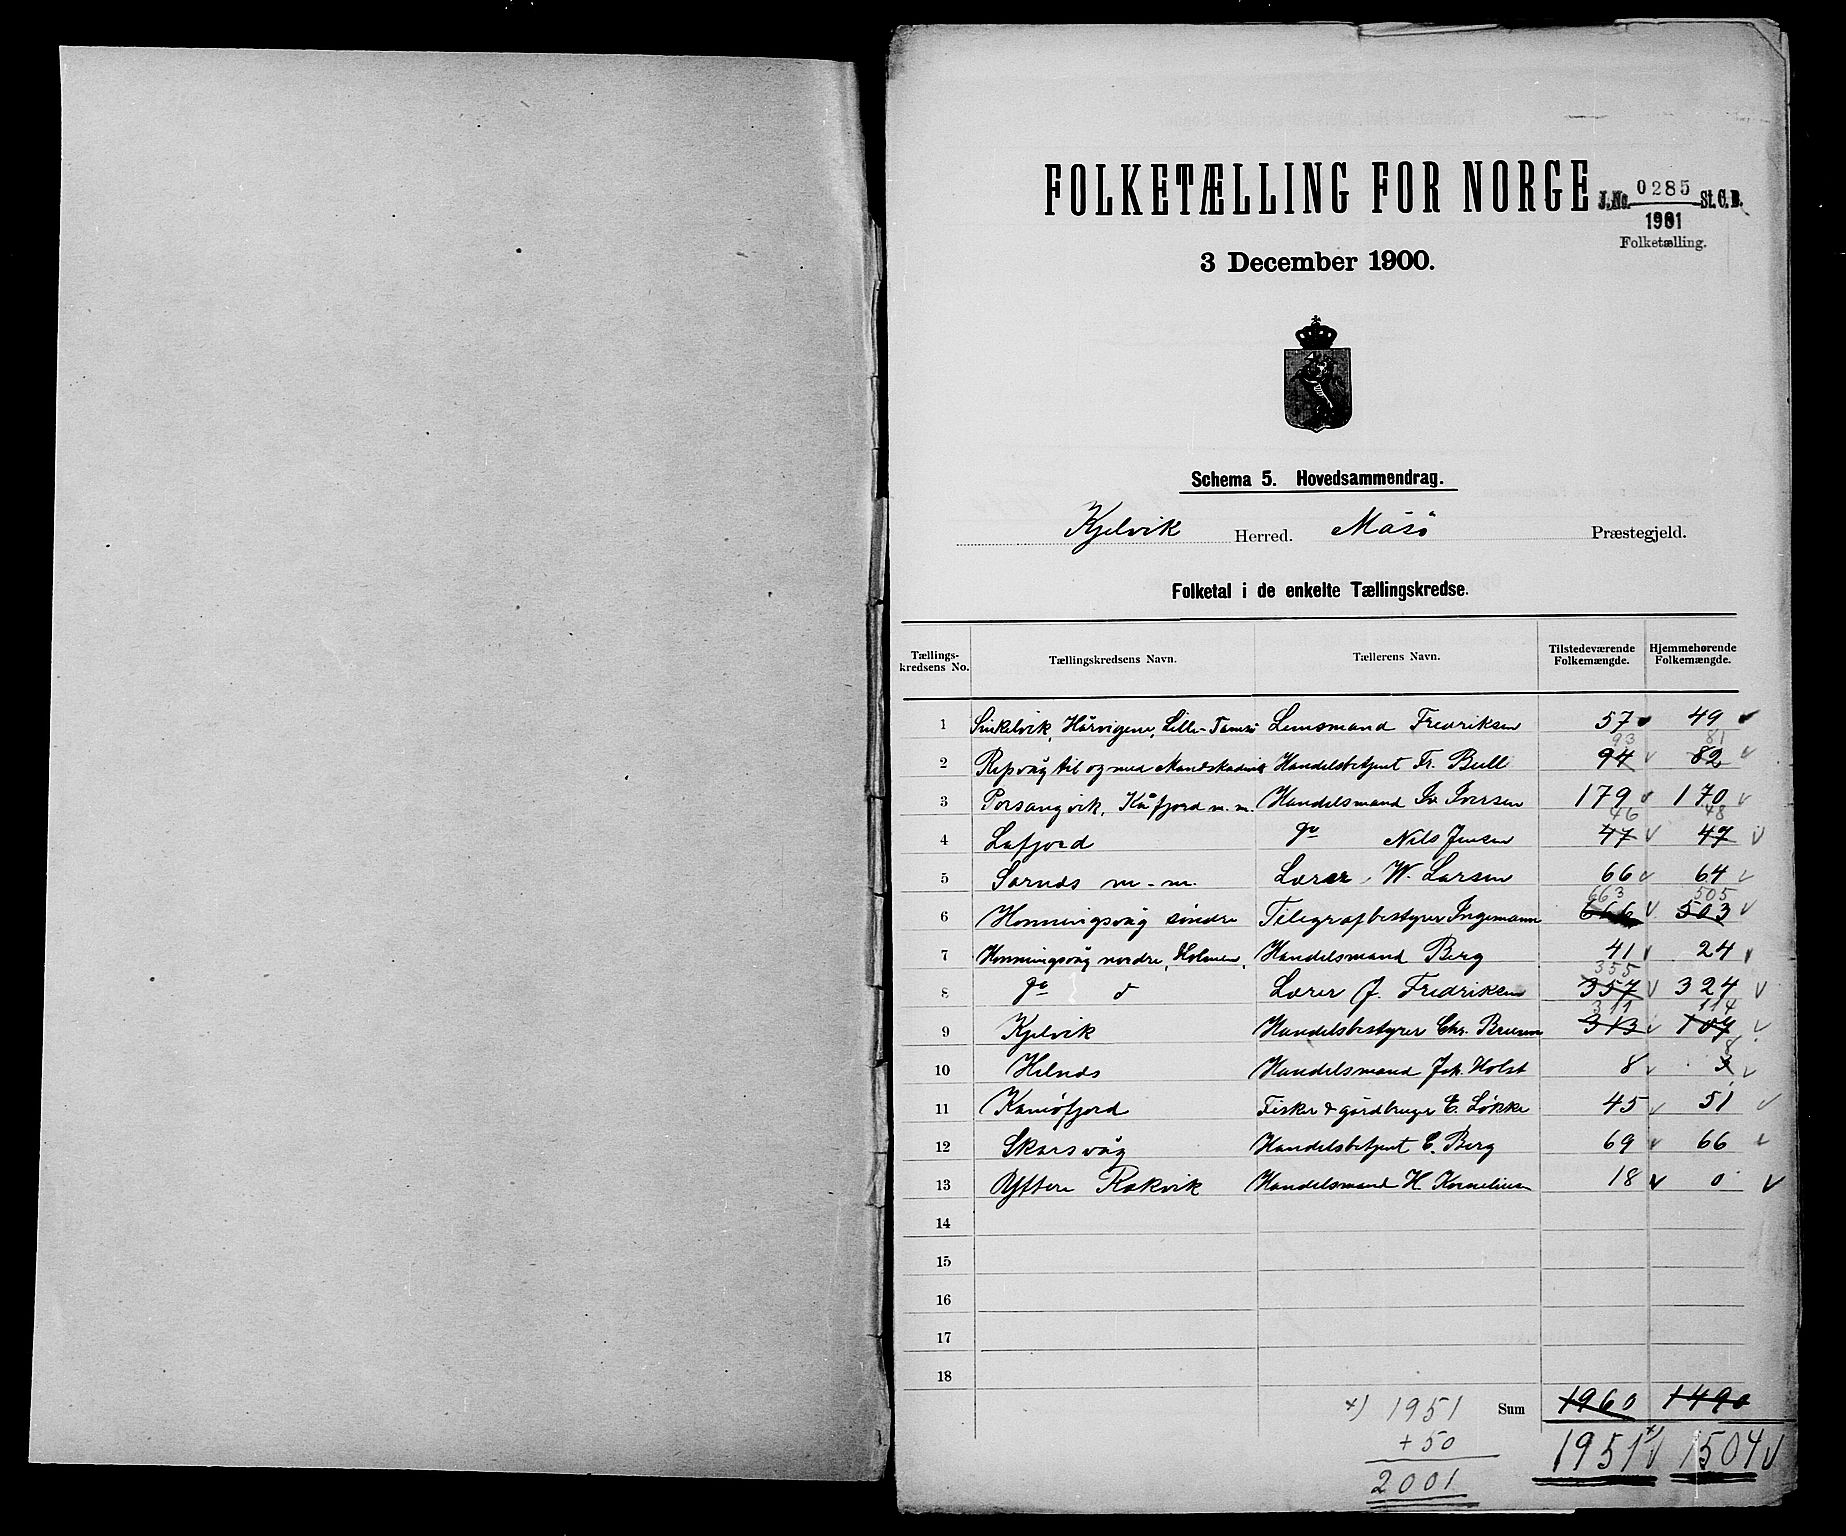 FOLKETÆLLING FOR NORGE
J.No. 0285 St.C.B.
1901
Folketælling.
3 December 1900.
Schema 5. Hovedsammendrag.
Kjelvik Herred. Måsø Præstegjeld.
Folketal i de enkelte Tællingskredse.
Tællings-kredsens No. Tællingskredsens Navn. Tællerens Navn. Tilstedeværende Folkemængde. Hjemmehørende Folkemængde.
1 Sirkelvik, Hårvigene, Lille-Tamsø Lensmand Fredriksen 57 49
93 81
2 Repvåg til og med Handelsbetjent Fr. Bull 94 82
3 Porsangvik, Kåfjord m.m. Handelsmand Iv Iversen 179 170
46 48
4 Lafjord do Nils Jensen 47 47
5 Sarnæs m.m. Lærer W. Larsen 66 64
663 505
6 Honningsvåg søndre Telegrafbestyrer Ingemann 666 503
7 Honningsvåg nordre, Holmen, Handelsmand Berg 41 24
355
8 do d Lærer J. Fredriksen 357 324
311 114
9 Kjelvik Handelsbestyrer Chr. Bruun 313 107
8
10 Helnæs Handelsmand Joh. Holst 8 3
11 Kamøfjord Fisker & gårdbruger E. Løkke 45 51
12 Skarsvåg Handelsbetjent E. Berg 69 66
13 Yttere Rakvik Handelsmand H Kornelius 18 0
14
15
16
17
18
x) 1951 Sum 1960 1490
+ 50 1951 x) 1504
2001